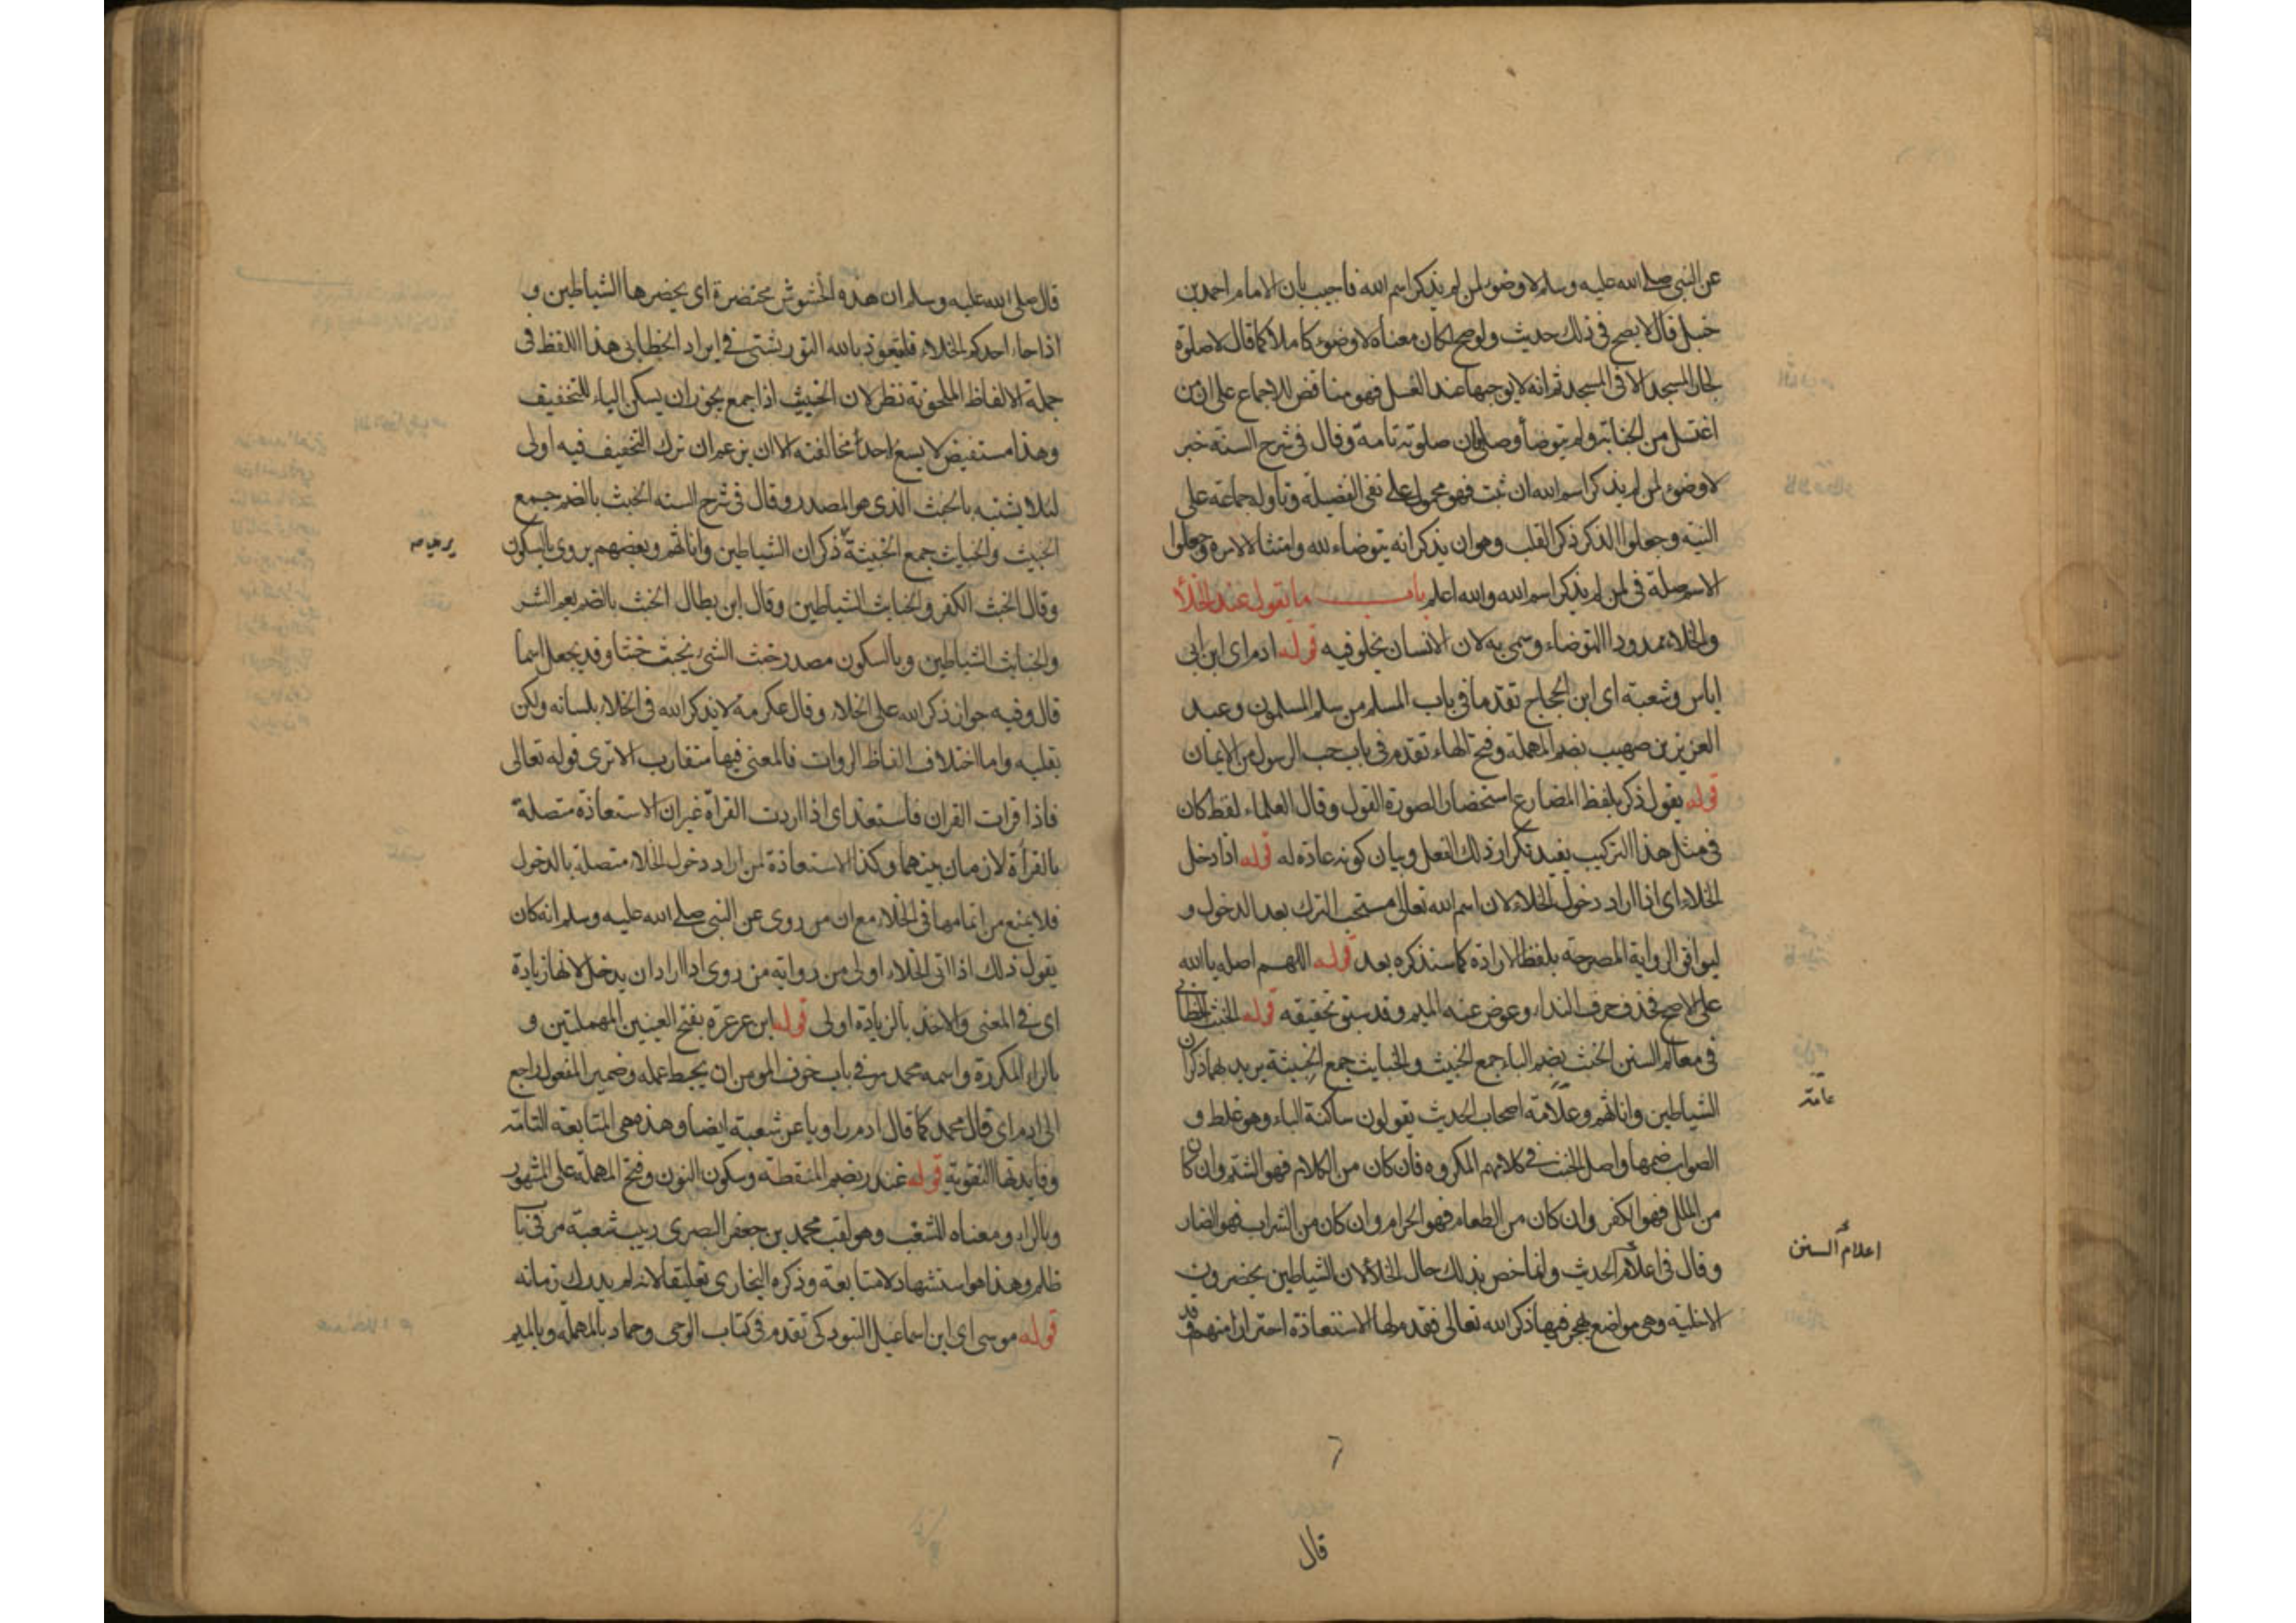 عن النبي صلى الله عليه وسلم لا وضوء لمن لم يذكر اسم الله فاجيب بان الامام احمد بن
حنبل قال لا يصح في ذلك حديث ولو صح لكان معناه لا وضوء كاملا كما قال لا صلوة
لجار المسجد الا في المسجد ثم انه لا يوجبها عند الغسل فهو مناقض للاجماع على ان من
اغتسل من الجنابة ولم يتوضأ وصلى فان صلوته تامة وقال في شرح السنة خبر
لا وضوء لمن لم يذكر اسم الله ان ثبت فهو محمول على نفي الفضيلة وتاوله جماعة على
النية وجعلوا الذكر ذكر القلب وهو ان يذكر انه يتوضاء لله وامتثالا لامره وجعلوا
الاسم صلة في لمن لم يذكر اسم الله والله اعلم باب ما يقول عند الخلأ
والخلاء ممدودا المتوضاء وسمي به لان الانسان يخلو فيه قوله ادم اى ابن ابي
اياس وشعبة اى ابن الحجاج تقدما في باب المسلم من سلم المسلمون وعبد
العزيز بن صهيب بضم المهملة وفتح الهاء تقدم في باب حب الرسول من الايمان
قوله يقول ذكر بلفظ المضارع استحضارا لصورة القول وقال العلماء لفظ كان
في مثل هذا التركيب يفيد تكرار ذلك الفعل وبيان كونه عادة له قوله اذا دخل
الخلاء اى اذا اراد دخول الخلاء لان اسم الله تعالى مستحب الترك بعد الدخول و
ليوافق الرواية المصرحة بلفظ الارادة كما سنذكره بعد قوله اللهم اصله يا الله
على الاصح فحذف حرف النداء وعوض عنه الميم وقد سبق تحقيقه قوله الخبث الخطابي
في معالم السنن الخبث بضم الباء جمع الخبيث والخبايث جمع الخبيثة يريد بهما ذكران
الشياطين واناثهم وعامة اصحاب الحديث يقولون ساكنة الباء وهو غلط و
الصواب ضمها واصل الخبث في كلامهم المكروه فان كان من الكلام فهو الشتم وان كان
من الملل فهو الكفر وان كان من الطعام فهو الحرام وان كان من الشراب فهو الضار
وقال في اعلام الحديث وانما خص بذلك حال الخلأ لان الشياطين يحضرون
الاخلية وهي مواضع يهجر فيها ذكر الله تعالى فقدم لها الاستعاذة احترازا منهم وقد
عامة
اعلام السنن
قال
قال صلى الله عليه وسلم ان هذه الحشوش محتضرة اى يحضرها الشياطين و
اذا جاء احدكم الخلاء فليتعوذ بالله التوربشتي في ايراد الخطابي هذا اللفظ في
جملة الالفاظ الملحونة نظر لان الخبيث اذا جمع يجوز ان يسكن الباء للتخفيف
وهذا مستفيض لا يسع احدا مخالفته الا ان يزعم ان ترك التخفيف فيه اولى
لئلا يشتبه بالخبث الذى هو المصدر وقال في شرح السنه الخبث بالضم جمع
الخبيث والخبايث جمع الخبيثة ذكران الشياطين واناثهم وبعضهم يروى بالسكون
وقال الخبث الكفر والخبائث الشياطين وقال ابن بطال الخبث بالضم يعم الشر
والخبايث الشياطين وبالسكون مصدر خبث الشئ يخبث خبثا وقد يجعل اسما
قال وفيه جواز ذكر الله على الخلاء وقال عكرمة لا يذكر الله في الخلاء بلسانه ولكن
بقلبه واما اختلاف الفاظ الروات فالمعنى فيها متقارب الا ترى قوله تعالى
فاذا قرات القران فاستعذ اى اذا اردت القرآة غير ان الاستعاذة متصلة
بالقرأة لا زمان بينهما وكذا الاستعاذة لمن اراد دخول الخلاء متصلة بالدخول
فلا يمنع من اتمامها في الخلاء مع ان من روى عن النبي صلى الله عليه وسلم انه كان
يقول ذلك اذا اتى الخلاء اولى من رواية من روى اذا اراد ان يدخل لانها زيادة
اى في المعنى والاخذ بالزيادة اولى قوله ابن عرعرة بفتح العينين المهملتين و
بالراء المكررة واسمه محمد مر في باب خوف المومن ان يحبط عمله وضمير المفعول راجع
الى ادم اى قال محمد كما قال ادم راويا عن شعبة ايضا وهذه هي المتابعة التامة
وفايدتها التقوية قوله غندر بضم المنقطة وسكون النون وفتح المهملة على المشهور
وبالراء ومعناه المشغب وهو لقب محمد بن جعفر البصرى ربيب شعبة مر في باب
ظلم وهذا هو استشهاد لا متابعة وذكره البخارى تعليقا لانه لم يدرك زمانه
قوله موسى اى ابن اسماعيل التبوذكى تقدم في كتاب الوحى وحماد بالمهملة وبالميم